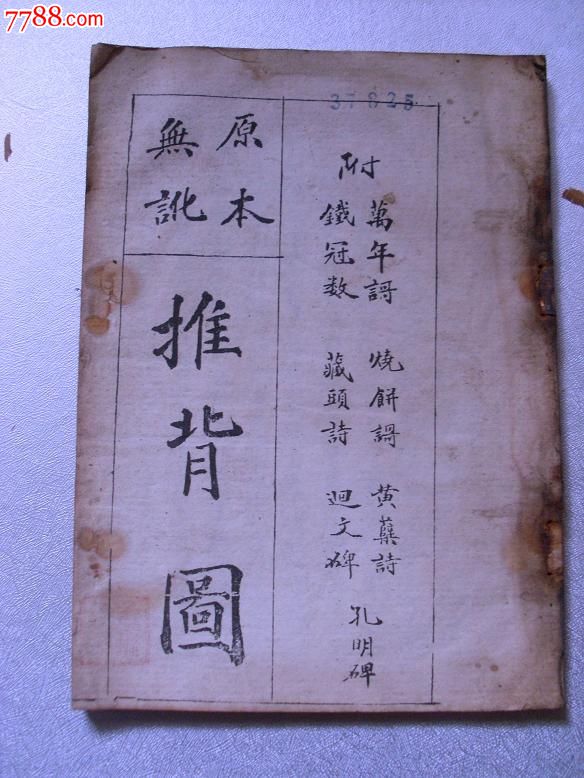 7788.com
37825
附
萬年謌 燒餅謌 黄蘗詩
鐵冠数 藏頭詩 迴文碑
孔明碑
原本
無訛
推背圖